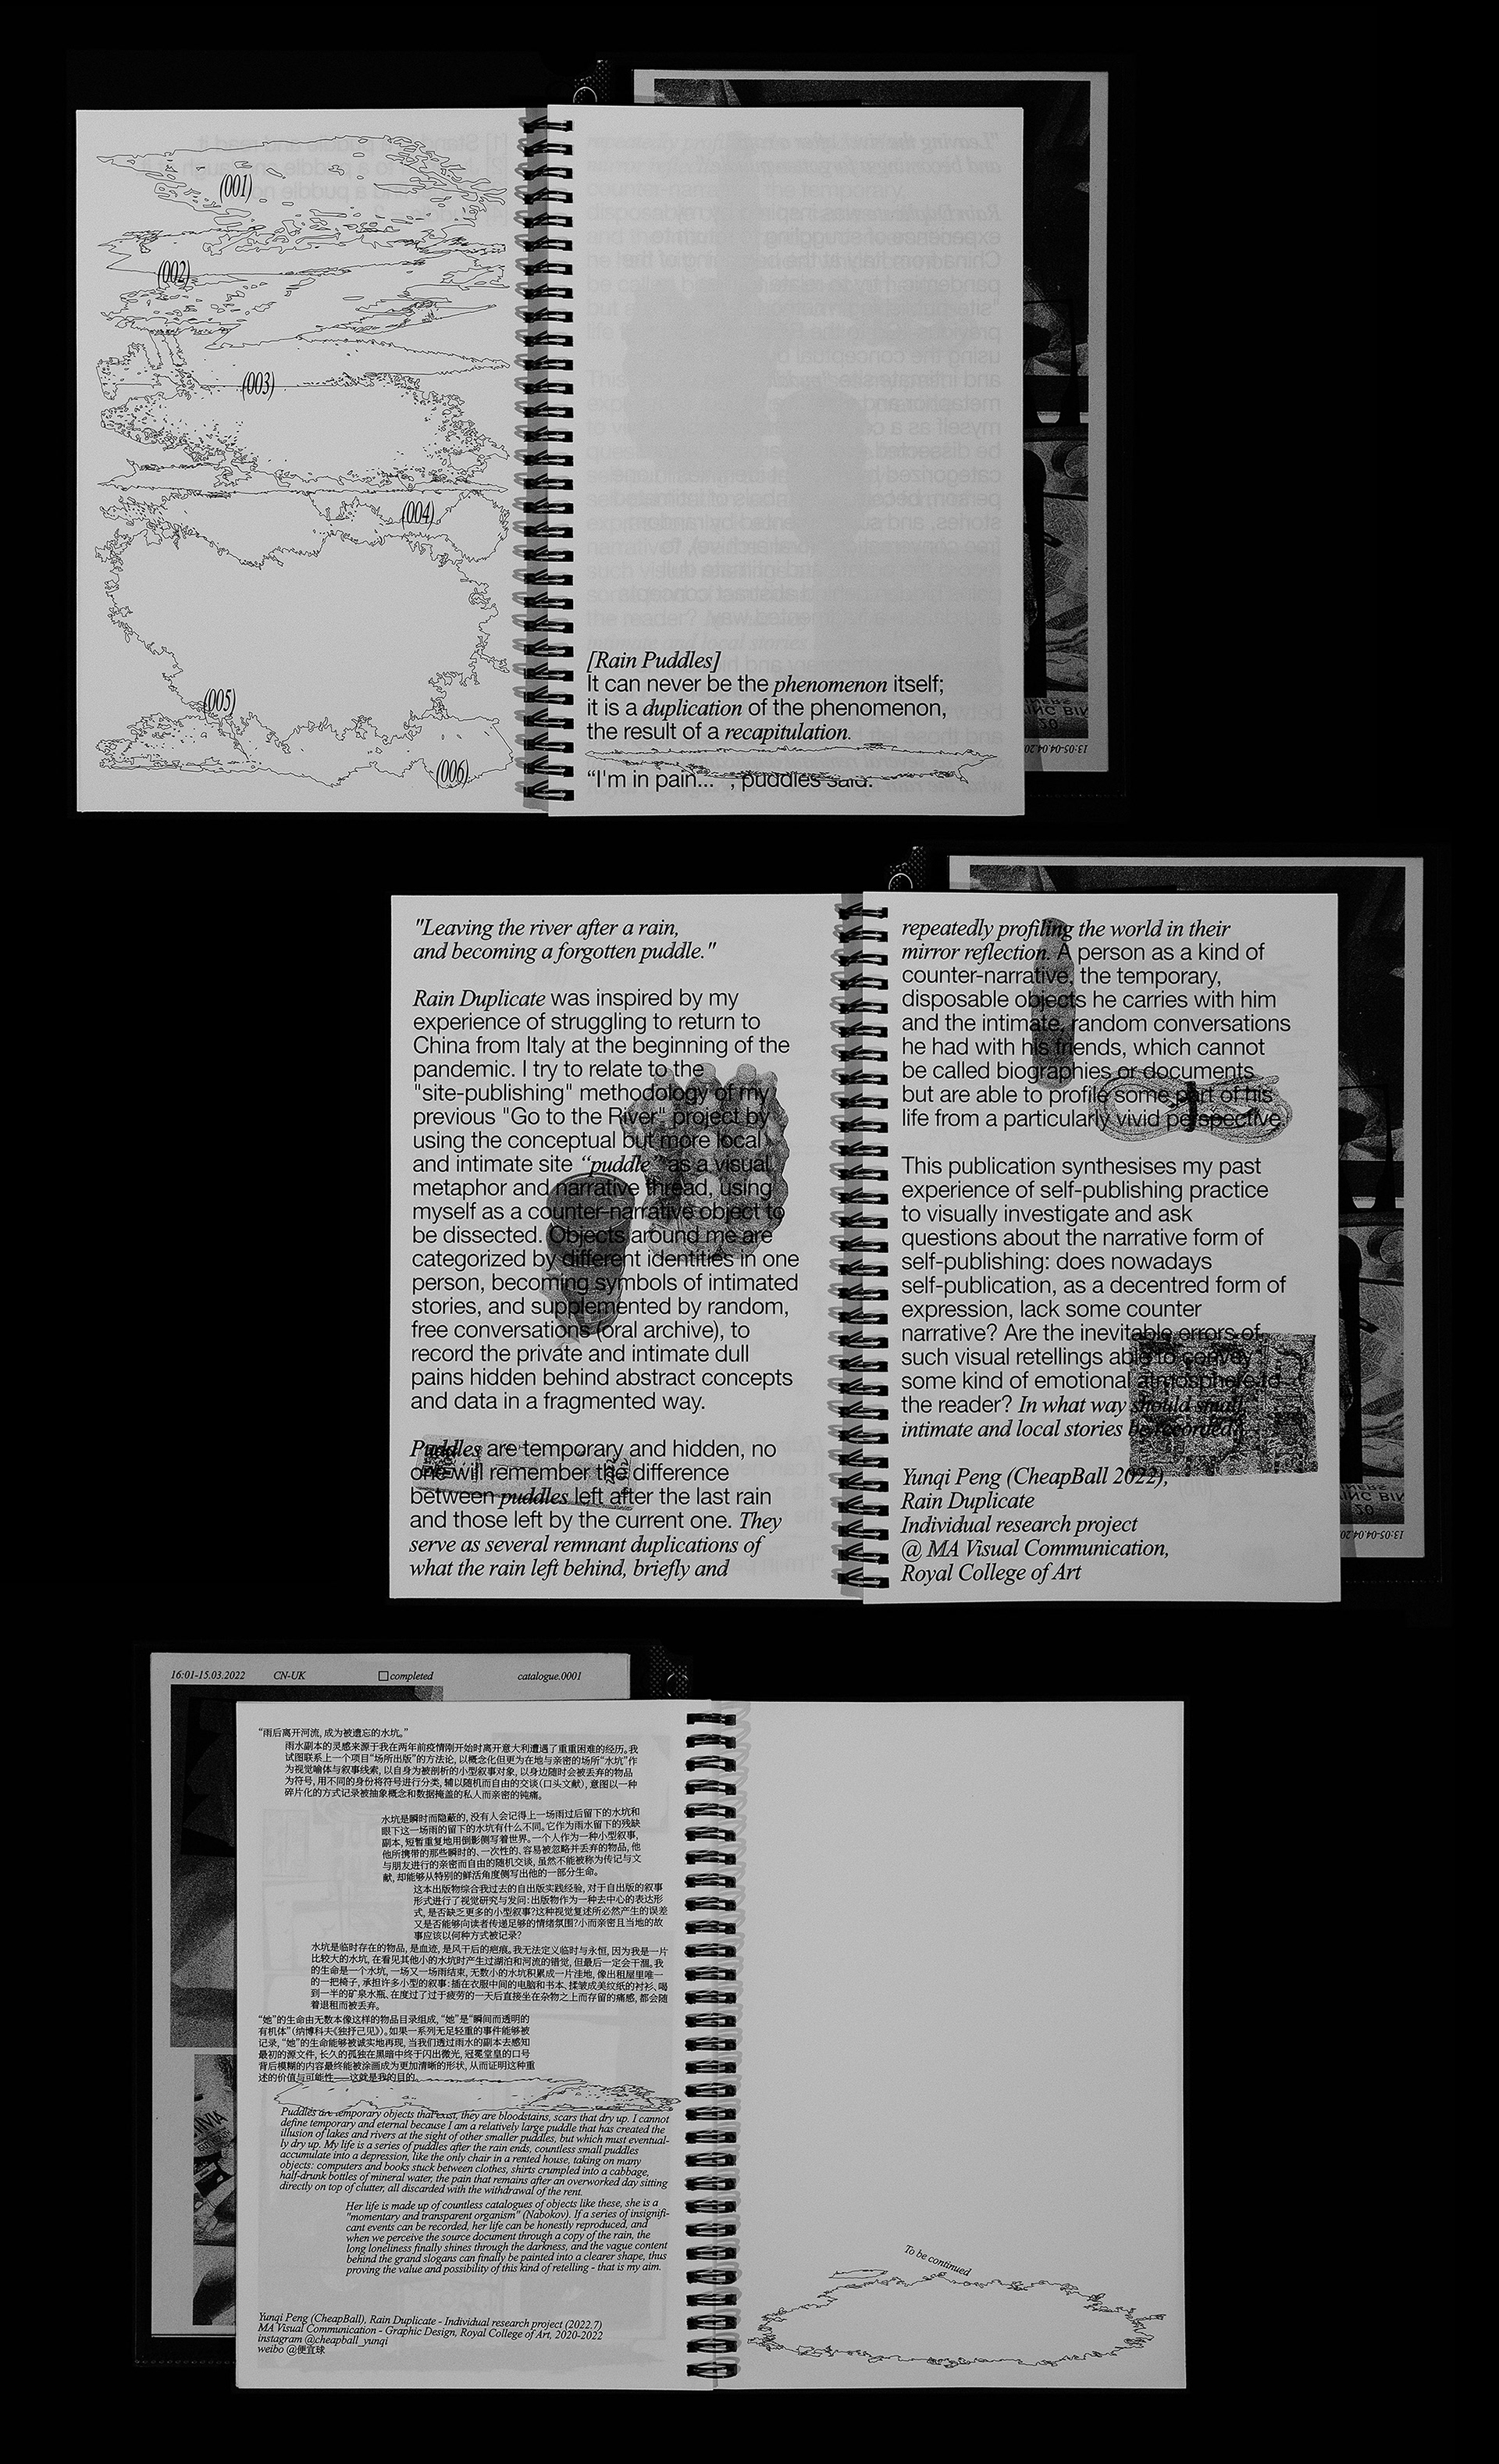 (001)
(002)
(003)
(004)
(005)
(006)
[Rain Puddles]
It can never be the phenomenon itself;
it is a duplication of the phenomenon,
the result of a recapitulation.
“I'm in pain... , puddles said.
13-05-04.04.20
"Leaving the river after a rain,
and becoming a forgotten puddle."
Rain Duplicate was inspired by my
experience of struggling to return to
China from Italy at the beginning of the
pandemic. I try to relate to the
"site-publishing" methodology of my
previous "Go to the River" project by
using the conceptual but more local
and intimate site “puddle” as a visual
metaphor and narrative thread, using
myself as a counter-narrative object to
be dissected. Objects around me are
categorized by different identities in one
person, becoming symbols of intimated
stories, and supplemented by random,
free conversations (oral archive), to
record the private and intimate dull
pains hidden behind abstract concepts
and data in a fragmented way.
Puddles are temporary and hidden, no
one will remember the difference
between puddles left after the last rain
and those left by the current one. They
serve as several remnant duplications of
what the rain left behind, briefly and
repeatedly profiling the world in their
mirror reflection. A person as a kind of
counter-narrative, the temporary,
disposable objects he carries with him
and the intimate, random conversations
he had with his friends, which cannot
be called biographies or documents
but are able to profile some part of his
life from a particularly vivid perspective.
This publication synthesises my past
experience of self-publishing practice
to visually investigate and ask
questions about the narrative form of
self-publishing: does nowadays
self-publication, as a decentred form of
expression, lack some counter
narrative? Are the inevitable errors of
such visual retellings able to convey
some kind of emotional atmosphere to
the reader? In what way should small,
intimate and local stories be recorded?
Yunqi Peng (CheapBall 2022),
Rain Duplicate
Individual research project
@ MA Visual Communication,
Royal College of Art
13-05-04.04.20
16:01-15.03.2022 CN-UK completed catalogue.0001
“雨后离开河流, 成为被遗忘的水坑。”
雨水副本的灵感来源于我在两年前疫情刚开始时离开意大利遭遇了重重困难的经历。我
试图联系上一个项目“场所出版”的方法论, 以概念化但更为在地与亲密的场所“水坑”作
为视觉喻体与叙事线索, 以自身为被剖析的小型叙事对象, 以身边随时会被丢弃的物品
为符号, 用不同的身份将符号进行分类, 辅以随机而自由的交谈(口头文献), 意图以一种
碎片化的方式记录被抽象概念和数据掩盖的私人而亲密的钝痛。
水坑是瞬时而隐蔽的, 没有人会记得上一场雨过后留下的水坑和
眼下这一场雨的留下的水坑有什么不同。它作为雨水留下的残缺
副本, 短暂重复地用倒影侧写着世界。一个人作为一种小型叙事,
他所携带的那些瞬时的、一次性的、容易被忽略并丢弃的物品, 他
与朋友进行的亲密而自由的随机交谈, 虽然不能被称为传记与文
献, 却能够从特别的鲜活角度侧写出他的一部分生命。
这本出版物综合我过去的自出版实践经验, 对于自出版的叙事
形式进行了视觉研究与发问: 出版物作为一种去中心的表达形
式, 是否缺乏更多的小型叙事?这种视觉复述所必然产生的误差
又是否能够向读者传递足够的情绪氛围?小而亲密且当地的故
事应该以何种方式被记录?
水坑是临时存在的物品, 是血迹, 是风干后的疤痕。我无法定义临时与永恒, 因为我是一片
比较大的水坑, 在看见其他小的水坑时产生过湖泊和河流的错觉, 但最后一定会干涸。我
的生命是一个水坑, 一场又一场雨结束, 无数小的水坑积累成一片洼地, 像出租屋里唯一
的一把椅子, 承担许多小型的叙事: 插在衣服中间的电脑和书本、揉皱成美纹纸的衬衫、喝
到一半的矿泉水瓶、在度过了过于疲劳的一天后直接坐在杂物之上而存留的痛感, 都会随
着退租而被丢弃。
“她”的生命由无数本像这样的物品目录组成, “她”是“瞬间而透明的
有机体”（纳博科夫《独抒己见》）。如果一系列无足轻重的事件能够被
记录, “她”的生命能够被诚实地再现, 当我们透过雨水的副本去感知
最初的源文件, 长久的孤独在黑暗中终于闪出微光, 冠冕堂皇的口号
背后模糊的内容最终能被涂画成为更加清晰的形状, 从而证明这种重
述的价值与可能性——这就是我的目的。
Puddles are temporary objects that exist, they are bloodstains, scars that dry up. I cannot
define temporary and eternal because I am a relatively large puddle that has created the
illusion of lakes and rivers at the sight of other smaller puddles, but which must eventual-
ly dry up. My life is a series of puddles after the rain ends, countless small puddles
accumulate into a depression, like the only chair in a rented house, taking on many
objects: computers and books stuck between clothes, shirts crumpled into a cabbage,
half-drunk bottles of mineral water, the pain that remains after an overworked day sitting
directly on top of clutter, all discarded with the withdrawal of the rent.
Her life is made up of countless catalogues of objects like these, she is a
"momentary and transparent organism" (Nabokov). If a series of insignifi-
cant events can be recorded, her life can be honestly reproduced, and
when we perceive the source document through a copy of the rain, the
long loneliness finally shines through the darkness, and the vague content
behind the grand slogans can finally be painted into a clearer shape, thus
proving the value and possibility of this kind of retelling - that is my aim.
Yunqi Peng (CheapBall), Rain Duplicate - Individual research project (2022.7)
MA Visual Communication - Graphic Design, Royal College of Art, 2020-2022
instagram @cheapball_yunqi
weibo @便宜球
To be continued